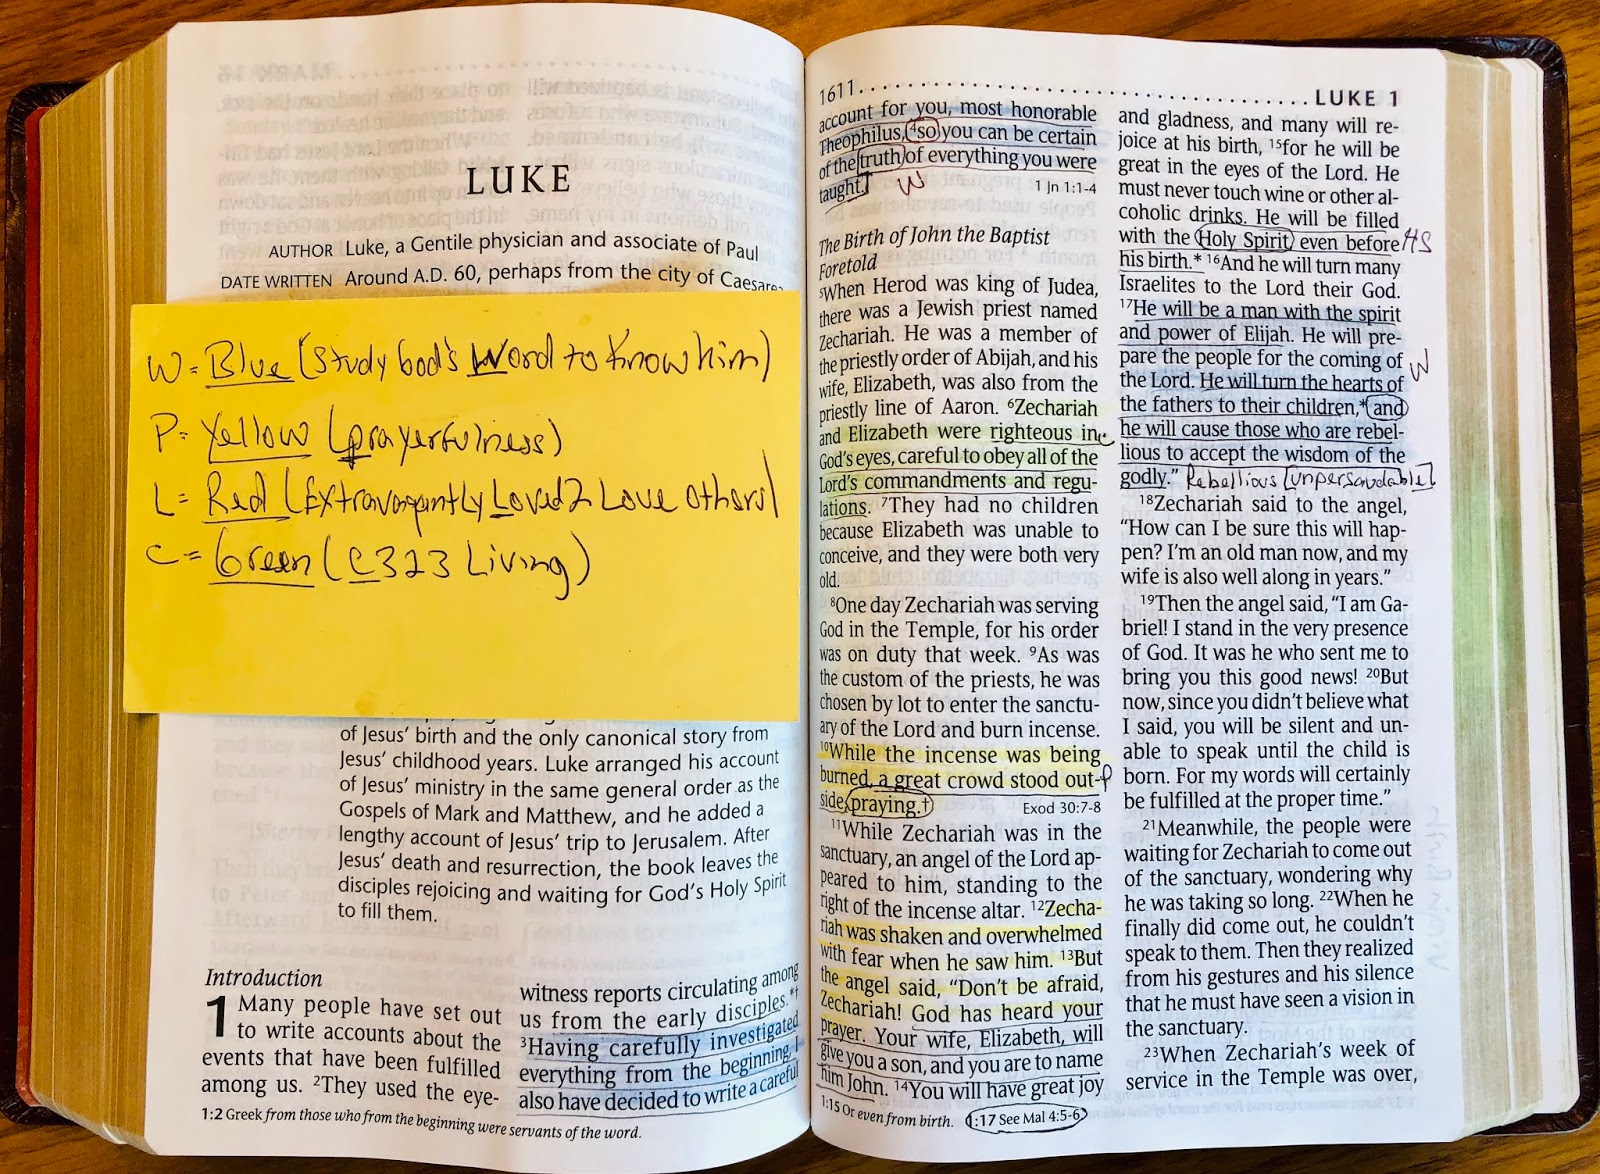 LUKE
AUTHOR Luke, a Gentile physician and associate of Paul
DATE WRITTEN Around A.D. 60, perhaps from the city of Caesarea
W = Blue (Study God's Word to Know him)
P = Yellow (prayerfulness)
L = Red (Extravagantly Loved 2 Love others)
C = Green (C323 Living)
of Jesus' birth and the only canonical story from
Jesus' childhood years. Luke arranged his account
of Jesus' ministry in the same general order as the
Gospels of Mark and Matthew, and he added a
lengthy account of Jesus' trip to Jerusalem. After
Jesus' death and resurrection, the book leaves the
disciples rejoicing and waiting for God's Holy Spirit
to fill them.
Introduction
1 Many people have set out
to write accounts about the
events that have been fulfilled
among us. 2They used the eye-
witness reports circulating among
us from the early disciples.*†
3Having carefully investigated
everything from the beginning, I
also have decided to write a careful
1:2 Greek from those who from the beginning were servants of the word.
1611 LUKE 1
account for you, most honorable
Theophilus, 4so you can be certain
of the truth of everything you were
taught.†
W
1 Jn 1:1-4
The Birth of John the Baptist
Foretold
5When Herod was king of Judea,
there was a Jewish priest named
Zechariah. He was a member of
the priestly order of Abijah, and his
wife, Elizabeth, was also from the
priestly line of Aaron. 6Zechariah
and Elizabeth were righteous in C
God's eyes, careful to obey all of the
Lord's commandments and regu-
lations. 7They had no children
because Elizabeth was unable to
conceive, and they were both very
old.
8One day Zechariah was serving
God in the Temple, for his order
was on duty that week. 9As was
the custom of the priests, he was
chosen by lot to enter the sanctu-
ary of the Lord and burn incense.
10While the incense was being
burned, a great crowd stood out- P
side, praying.† Exod 30:7-8
11While Zechariah was in the
sanctuary, an angel of the Lord ap-
peared to him, standing to the
right of the incense altar. 12Zecha-
riah was shaken and overwhelmed
with fear when he saw him. 13But
the angel said, "Don't be afraid,
Zechariah! God has heard your
prayer. Your wife, Elizabeth, will
give you a son, and you are to name
him John. 14You will have great joy
and gladness, and many will re-
joice at his birth, 15for he will be
great in the eyes of the Lord. He
must never touch wine or other al-
coholic drinks. He will be filled
with the Holy Spirit, even before HS
his birth.* 16And he will turn many
Israelites to the Lord their God.
17He will be a man with the spirit
and power of Elijah. He will pre-
pare the people for the coming of W
the Lord. He will turn the hearts of
the fathers to their children,* and
he will cause those who are rebel-
lious to accept the wisdom of the
godly." Rebellious [unpersaudable]
18Zechariah said to the angel,
"How can I be sure this will hap-
pen? I'm an old man now, and my
wife is also well along in years."
19Then the angel said, "I am Ga-
briel! I stand in the very presence
of God. It was he who sent me to
bring you this good news! 20But
now, since you didn't believe what
I said, you will be silent and un-
able to speak until the child is
born. For my words will certainly
be fulfilled at the proper time."
21Meanwhile, the people were
waiting for Zechariah to come out
of the sanctuary, wondering why
he was taking so long. 22When he
finally did come out, he couldn't
speak to them. Then they realized
from his gestures and his silence
that he must have seen a vision in
the sanctuary.
23When Zechariah's week of
service in the Temple was over,
1:15 Or even from birth. 1:17 See Mal 4:5-6